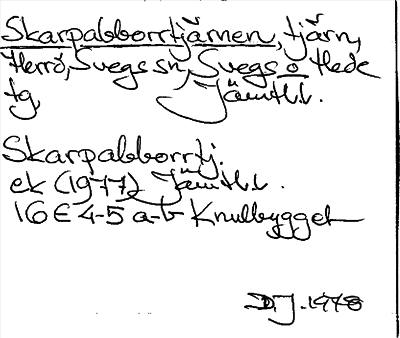 Skarpabborrtjärnen, tjärn,
Herrö, Svegs sn, Svegs o Hede
tg, Jämtl.l.
Skarpabborrtj.
ek (1977) Jämtl.l.
16E 4-5 a-b Knulbygget
D.J. 1978